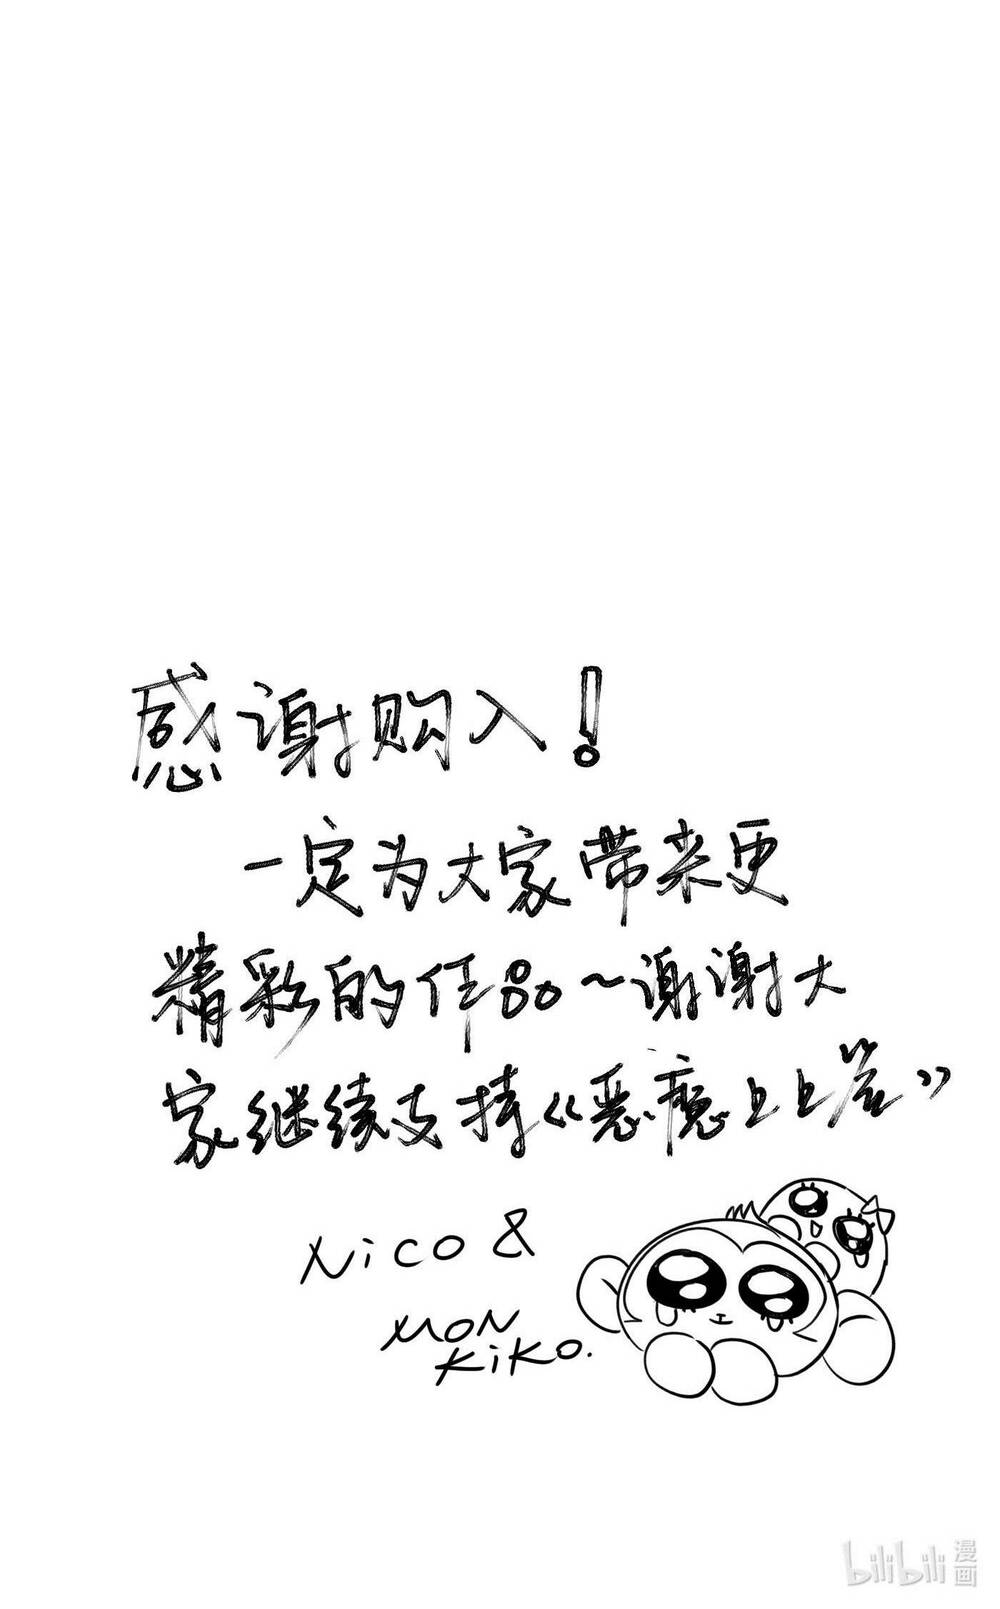 感谢购入！
一定为大家带来更
精彩的作品～谢谢大
家继续支持《恶魔上上签》
Nico &
MON
KiKO.
bilibili 漫画